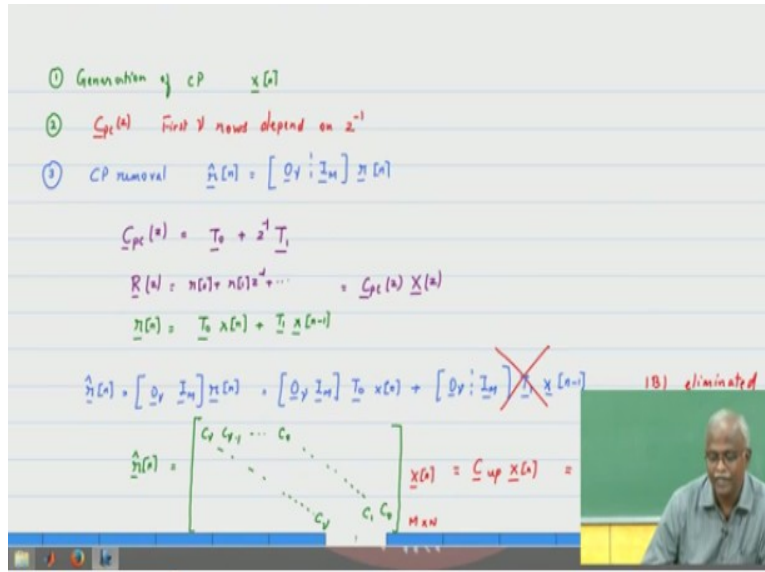 ① Generation of CP x[n]
② C_pc(z) First ν rows depend on z^-1
③ CP removal r̂[n] = [ 0_ν ⋮ I_M ] r[n]
C_pc(z) = T_0 + z^-1 T_1
R(z) = r[0] + r[1]z^-1 + ... = C_pc(z) X(z)
r[n] = T_0 x[n] + T_1 x[n-1]
r̂[n] = [ 0_ν I_M ] r[n] = [ 0_ν I_M ] T_0 x[n] + [ 0_ν ⋮ I_M ] T_1 x[n-1] IBI eliminated
r̂[n] = [ C_ν C_ν-1 ... C_0 ... C_ν C_1 C_0 ] M×N x[n] = C_up x[n] =